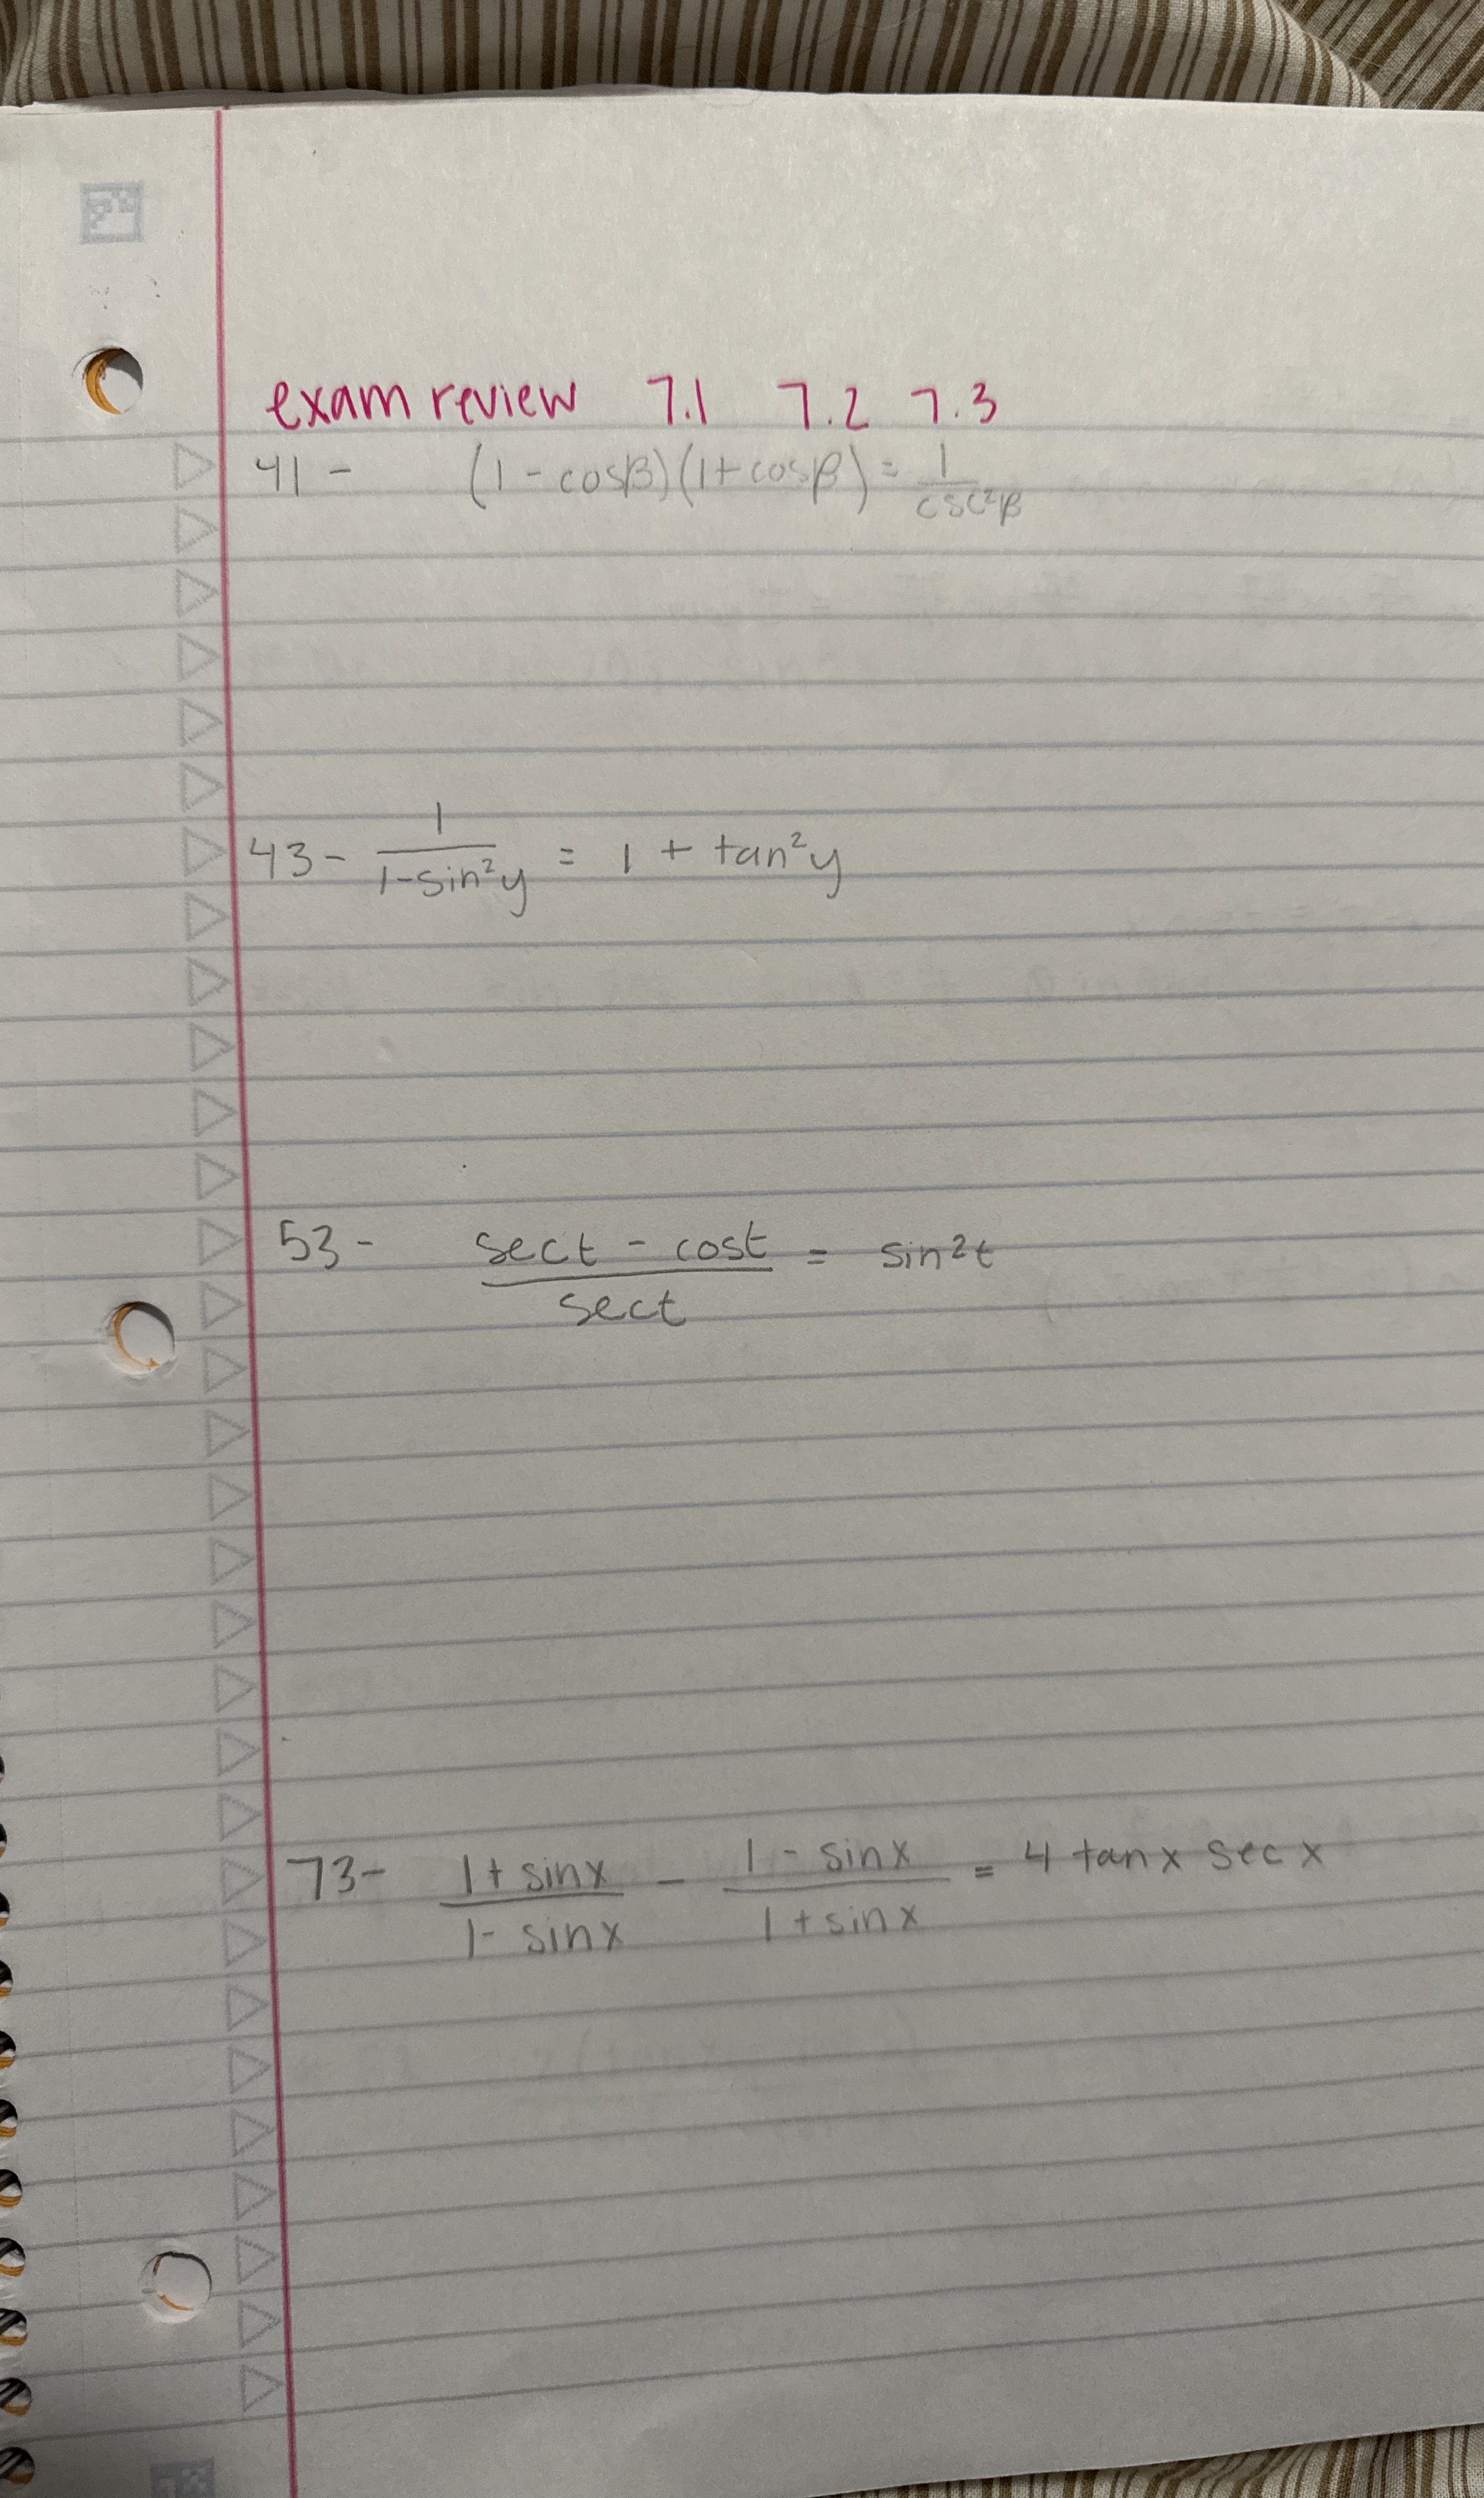 exam review 7.1 7.2 7.3
41- (1-cosβ)(1+cosβ) = 1/csc²β
43- 1/1-sin²y = 1 + tan²y
53- sect - cost/sect = sin²t
73- 1+sinx/1-sinx - 1-sinx/1+sinx = 4 tanx secx